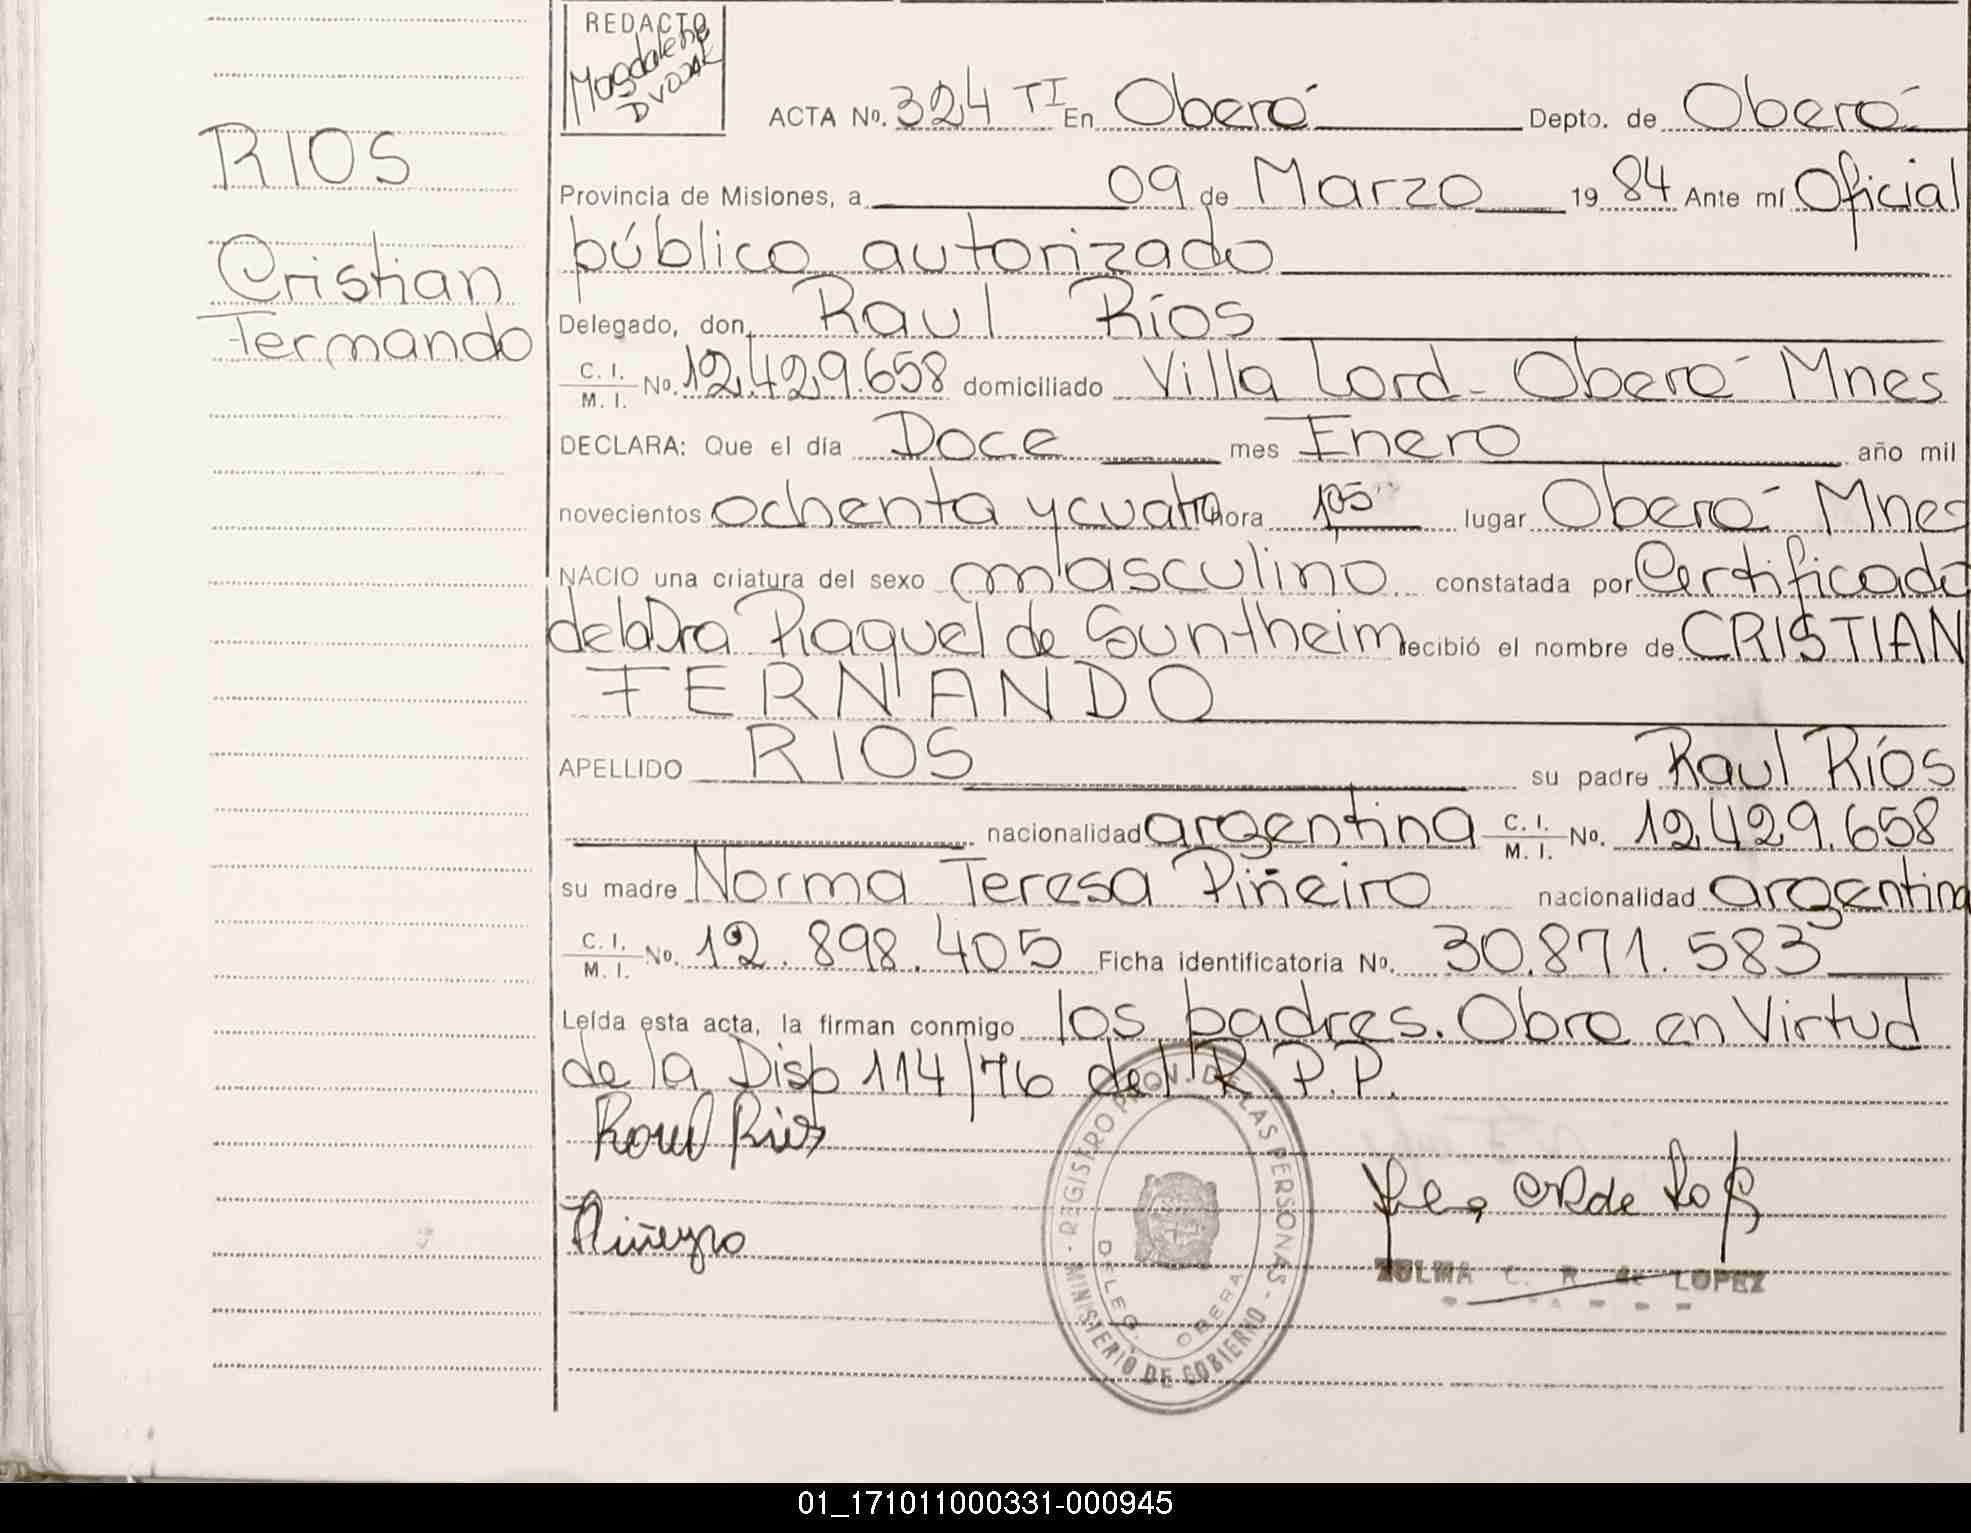 REDACTO
Magdalena
DVOJAK
ACTA No. 324 TI En Oberá Depto. de Oberá
RIOS
Provincia de Misiones, a 09 de Marzo 19 84 Ante mí Oficial
público autorizado
Cristian
Fernando
Delegado, don Raul Ríos
C. I. / M. I. No. 12.429.658 domiciliado Villa Lord - Oberá Mnes
DECLARA: Que el día Doce mes Enero año mil
novecientos ochenta y cuatro hora 1,05 lugar Oberá Mnes
NACIO una criatura del sexo masculino constatada por Certificado
de la Dra Raquel de Suntheim recibió el nombre de CRISTIAN
FERNANDO
APELLIDO RIOS su padre Raul Ríos
nacionalidad argentina C. I. / M. I. No. 12.429.658
su madre Norma Teresa Piñeiro nacionalidad argentina
C. I. / M. I. No. 12.898.405 Ficha identificatoria No. 30.871.583
Leída esta acta, la firman conmigo los padres. Obro en Virtud
de la Disp 114/76 del R.P.P.
Raul Rios
Piñeyro
REGISTRO PROV. DE LAS PERSONAS - MINISTERIO DE GOBIERNO
DELEG. OBERA
ZULMA C. R. de LOPEZ
01_171011000331-000945